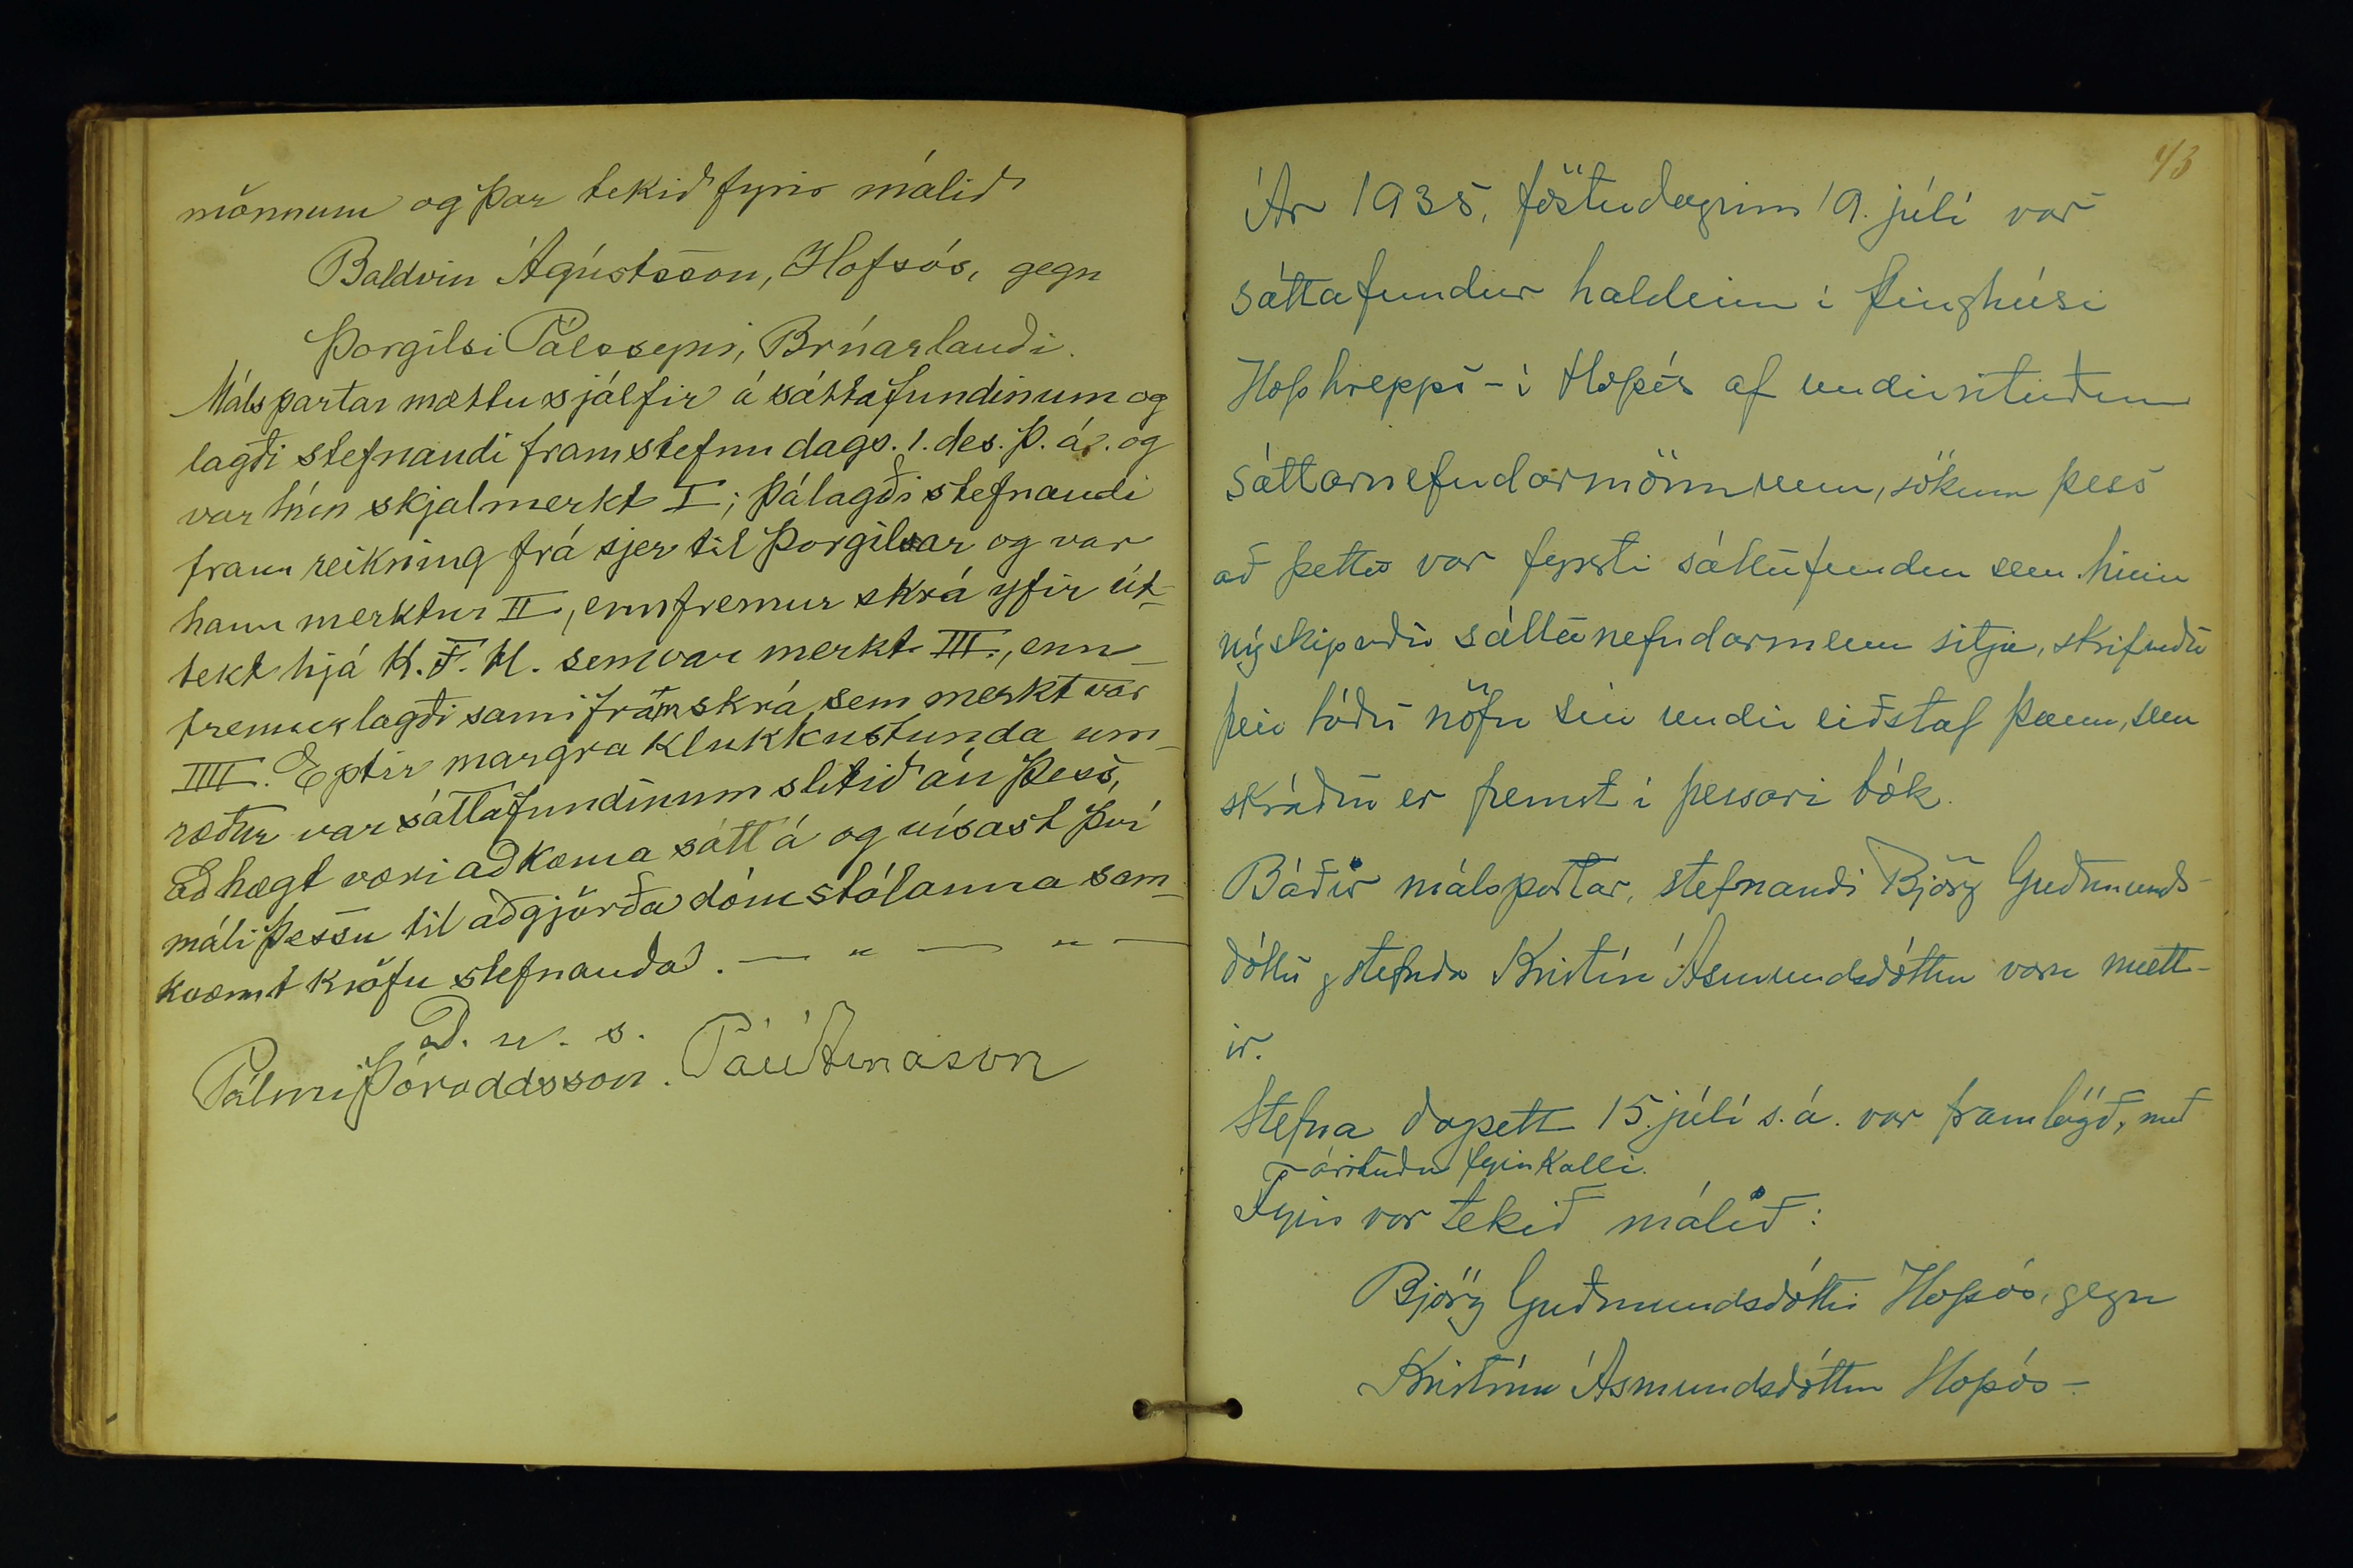 mönnum og þar tekið fyrir málið
Baldvin Ágústsson, Hofsós, gegn
Þorgilsi Pálssyni, Brúarlandi.
Málspartar mættu sjálfir á sáttafundinum og
lagði stefnandi fram stefnu dags. 1. des. þ. ár. og
var hún skjalmerkt I; þá lagði stefnandi
fram reikning frá sjer til Þorgilsar og var
hann merktur II, ennfremur skrá yfir út-
tekt hjá K.F.H. sem var merkt III., enn-
fremur lagði sami fram skrá sem merkt var
IIII. Eptir margra klukkustunda um-
ræður var sáttafundinum slitið án þess,
að hægt væri að koma sátt á og vísast því
máli þessu til aðgjörða dómstólanna sam-
kvæmt kröfu stefnanda. — " — " —
D. u. s.
Pálmi Þóroddsson. Páll Árnason
43
Ár 1935, föstudaginn 19. júlí var
sáttafundur haldinn í þinghúsi
Hofshrepps - í Hofsós af undirrituðum
sáttarnefndarmönnum, sökum þess
að þetta var fyrsti sáttafundur sem hinir
nýskipuðu sáttanefndarmenn sitja, skrifuðu
þeir báðir nöfn sín undir eiðstaf þann, sem
skráður er fremst í þessari bók.
Báðir málspartar, stefnandi Björg Guðmunds-
dóttir og stefnda Kristín Ásmundsdóttir voru mætt-
ir.
Stefna dagsett 15. júlí s.á. var framlögð, með
áritaðu fyrirkalli.
Fyrir var tekið málið:
Björg Guðmundsdóttir Hofsós, gegn
Kristínu Ásmundsdóttur Hofsós -